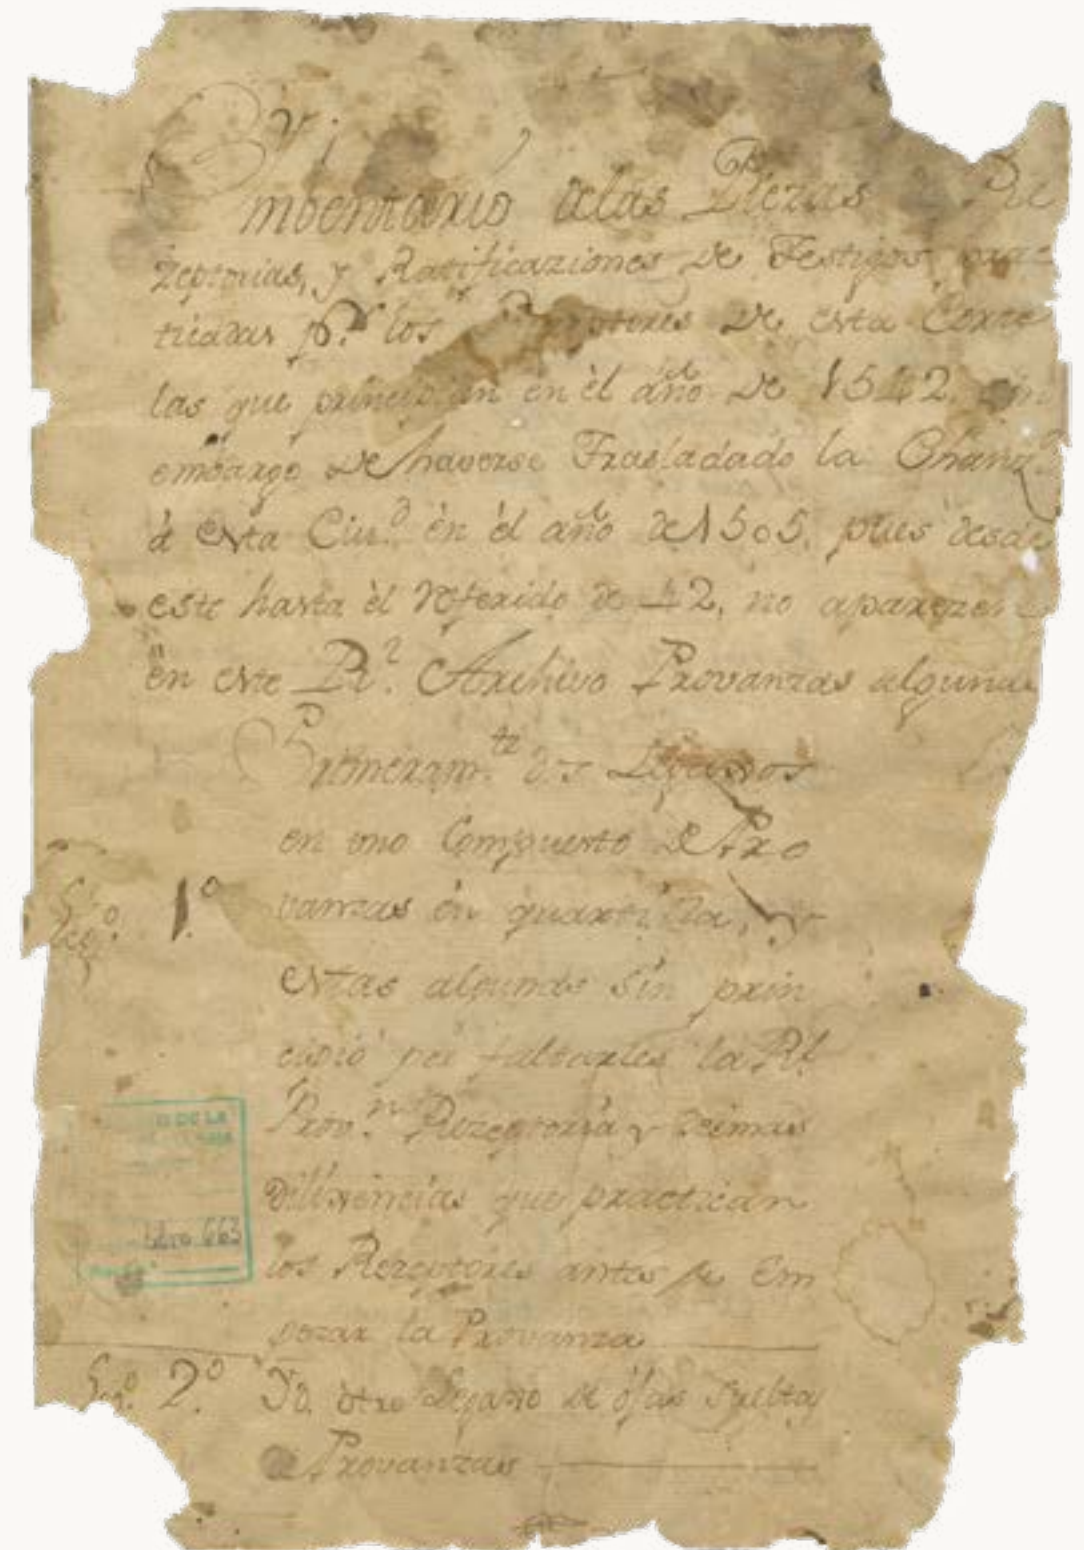 Imbentario delas Piezas de Re
zeptorias, y Ratificaziones de Testigos prac
ticadas p.r los Rezeptores de esta Corte
las que principian en èl año de 1542. sin
embargo de haverse Trasladado la Chanz.a
à esta Ciu.d èn èl año de 1505. pues desde
este hasta èl referido de 42, no aparezen
èn este R.l Archivo Provanzas algunas
Primeram.te dos Legajos
en uno Compuesto de Pro
vanzas èn quartilla, y
estas algunas sin prin
cipio por faltarles la Rl
Leg.o 1.o
Prov.n Rezeptoria y demas
dilixencias que practican
los Rezeptores antes de Em
pezar la Provanza
Leg.o 2.o Yd. otro Legajo de ojas sueltas
de Provanzas
O DE LA
Libro 663